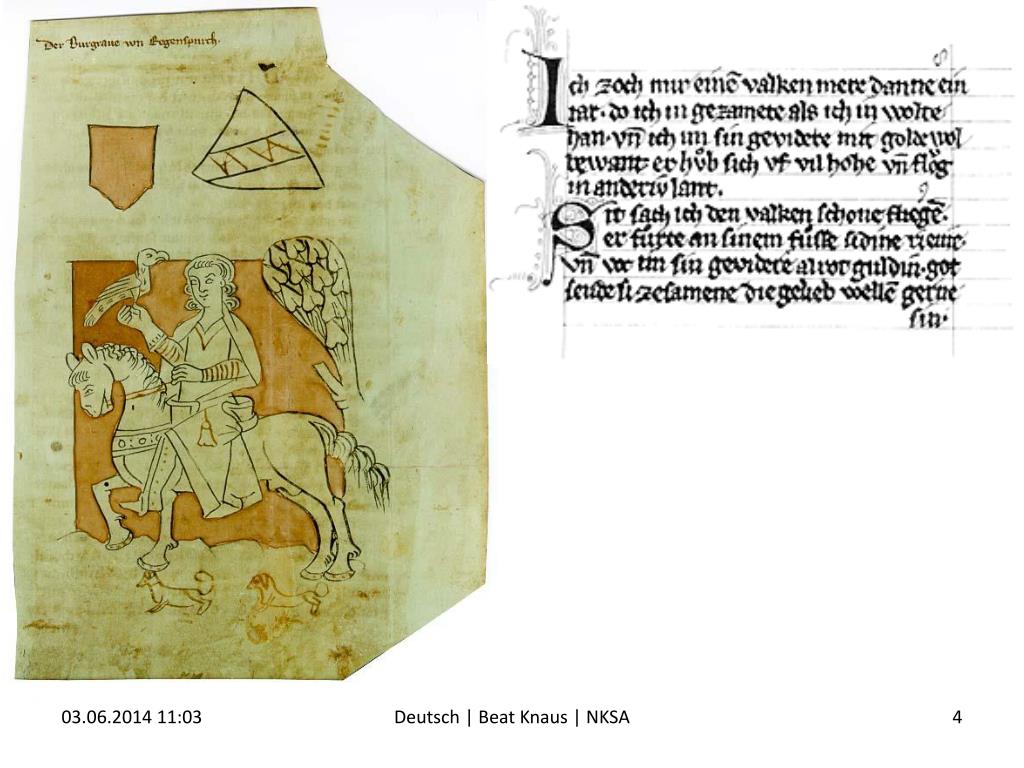 Der Burgraue vvn Regenspurch.
Ich zoch mir einē valken mere danne ein
iar. do ich in gezamete als ich in wolte
han. vn̄ ich im sin gevidere mit golde wol
bewant er hůb sich vf vil hohe vn̄ flǒg
in anderiv lant.
Sit sach ich den valken schone fliegē.
er fůrte an sinem fůsse sidine rieme.
vn̄ was im sin gevidere alrot guldin. got
sende si zesamene die gelieb wellē gerne
sin.
03.06.2014 11:03
Deutsch | Beat Knaus | NKSA
4